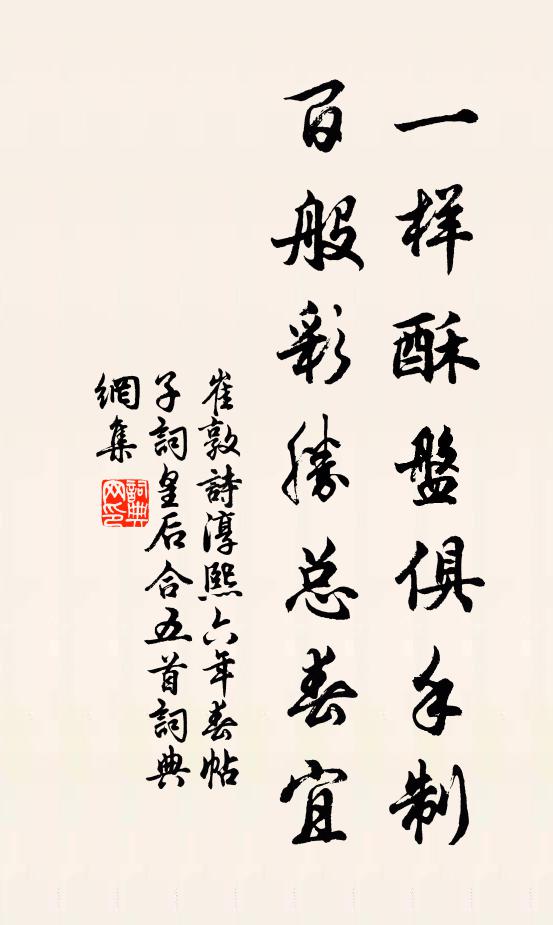 一样酥盤俱手制
百般彩勝总春宜
崔敦詩淳熙六年春帖
子詞皇后合五首詞典
網集
詞典网印